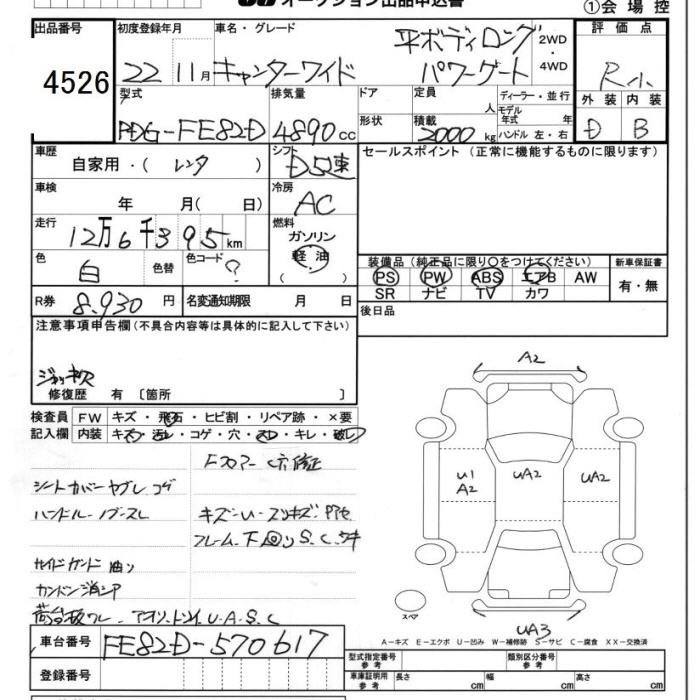 オークション出品申込書 ①会場控
出品番号 4526
初度登録年月 22 11月
車名・グレード 平ボディロング
キャンターワイド パワーゲート
2WD・4WD
評価点 R小
外装 D 内装 B
型式 PDG-FE82D
排気量 4890cc
ドア 形状
定員 人
積載 2000kg
ディーラー・並行
モデル年式 年
ハンドル 左・右
車歴 自家用・(レンタ)
シフト D5速
セールスポイント(正常に機能するものに限ります)
車検 年 月(日)
冷房 AC
走行 12万6千395km
燃料 ガソリン 軽油 ( )
色 白 色替 色コード ?
装備品(純正品に限り○をつけてください)
PS PW ABS エアB AW
SR ナビ TV カワ
新車保証書 有・無
R券 8,930円 名変通知期限 月 日
後日品
注意事項申告欄(不具合内容等は具体的に記入して下さい)
修復歴 有〔箇所 〕
検査員記入欄
FW キズ・飛石・ヒビ割・リペア跡・×要
内装 キズ・汚レ・コゲ・穴・スレ・キレ・破レ
シートカバーヤブレ コゲ
ハンドル
キズ・U・スリキズ
フレーム下回りS.C.
サイドガード 曲り
U.A.S.C
A2
U1
A2
UA2
UA2
UA3
スペア
A−キズ E−エクボ U−凹み W−補修跡 S−サビ C−腐食 XX−交換済
車台番号 FE82D-570617
登録番号
型式指定番号 参考
類別区分番号 参考
車庫証明用 参考 長さ cm 幅 cm 高さ cm